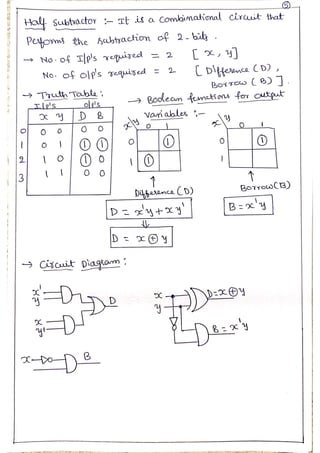 5
Half Subtractor :- It is a Combinational Circuit that
Performs the subtraction of 2-bits.
→ No. of I/p's required = 2 [x, y]
No. of o/p's required = 2 [Difference (D),
Borrow (B)].
→ Truth Table: → Boolean functions for output
I/p's o/p's Variables :-
x y D B
0 0 0 0 0
1 0 1 1 1
2 1 0 1 0
3 1 1 0 0
x\y 0 1
0 1
1 1
x\y 0 1
0 1
1
Difference (D) Borrow (B)
D = x'y + xy' B = x'y
⇓
D = x ⊕ y
→ Circuit Diagram :
x' x D = x ⊕ y
y D y
x
y' B = x'y
x B
y